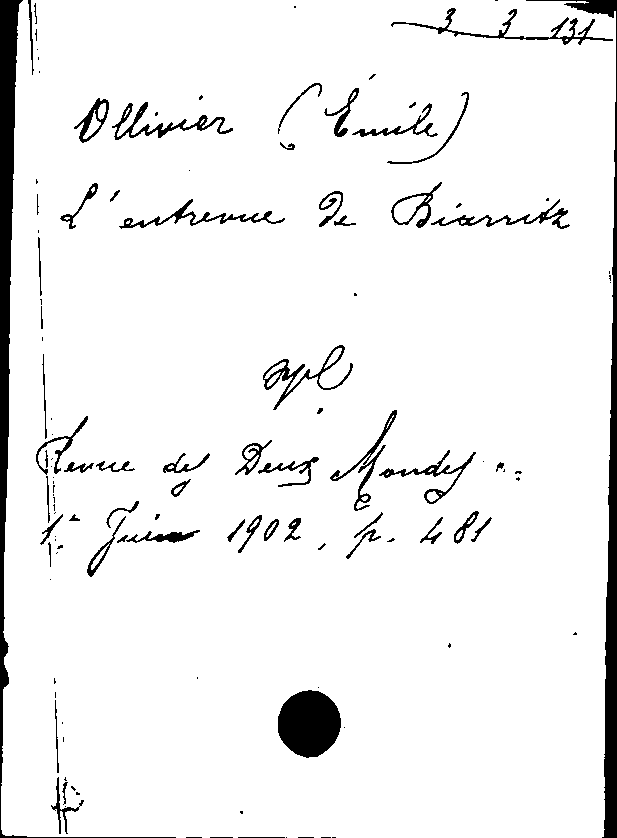 3. 3. 131
Ollivier (Émile)
L'entrevue de Biarritz
Revue des Deux Mondes
1er Juin 1902, p. 481